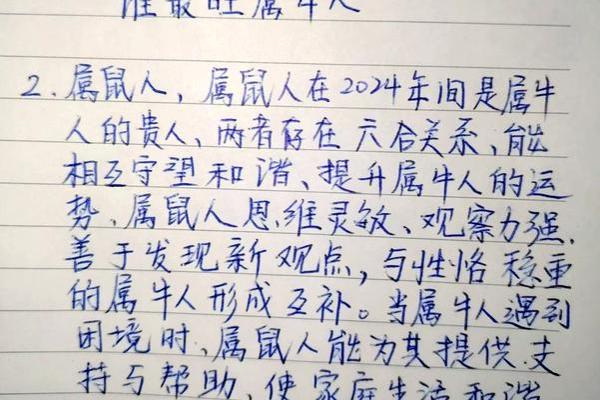 谁最旺属牛人
2.属鼠人，属鼠人在2024年间是属牛
人的贵人、两者存在六合关系、能
相互守望和谐、提升属牛人的运
势、属鼠人思维灵敏、观察力强、
善于发现新观点，与性恪稳重
的属牛人形成互补。当属牛人遇到
困境时、属鼠人能为其提供支
持与帮助、使家庭生活和谐